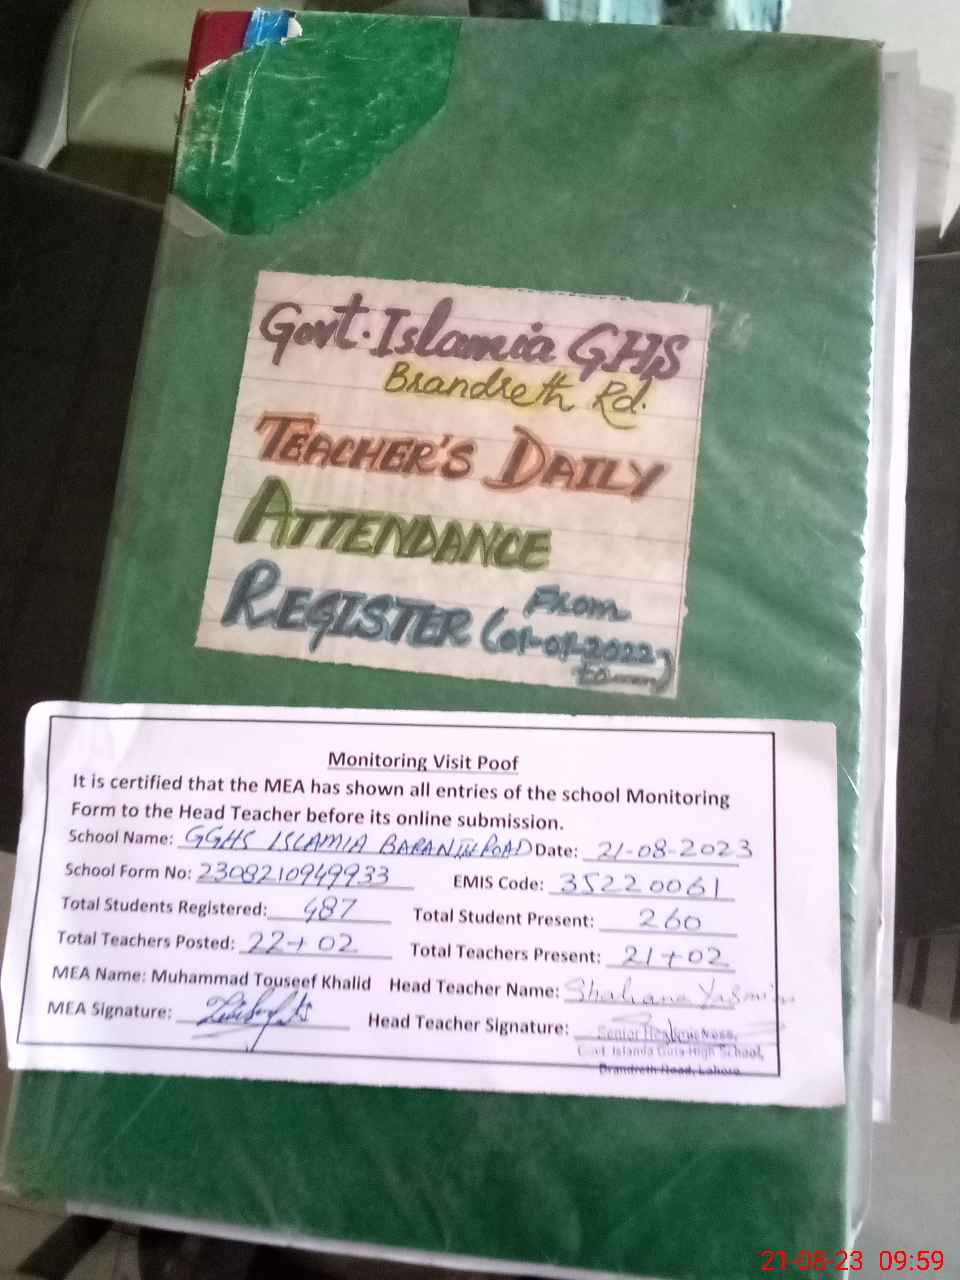 Govt. Islamia GHS
Brandreth Rd.
TEACHER'S DAILY
ATTENDANCE
REGISTER (From
01-01-2022
to )
Monitoring Visit Poof
It is certified that the MEA has shown all entries of the school Monitoring
Form to the Head Teacher before its online submission.
School Name: GGHS ISLAMIA BARANTH ROAD Date: 21-08-2023
School Form No: 2308210949933 EMIS Code: 35220061
Total Students Registered: 487 Total Student Present: 260
Total Teachers Posted: 22+02 Total Teachers Present: 21+02
MEA Name: Muhammad Touseef Khalid Head Teacher Name: Shahana Yasmin
MEA Signature: Head Teacher Signature:
Senior Headmistress,
Govt. Islamia Girls High School,
Brandreth Road, Lahore
21-08-23 09:59